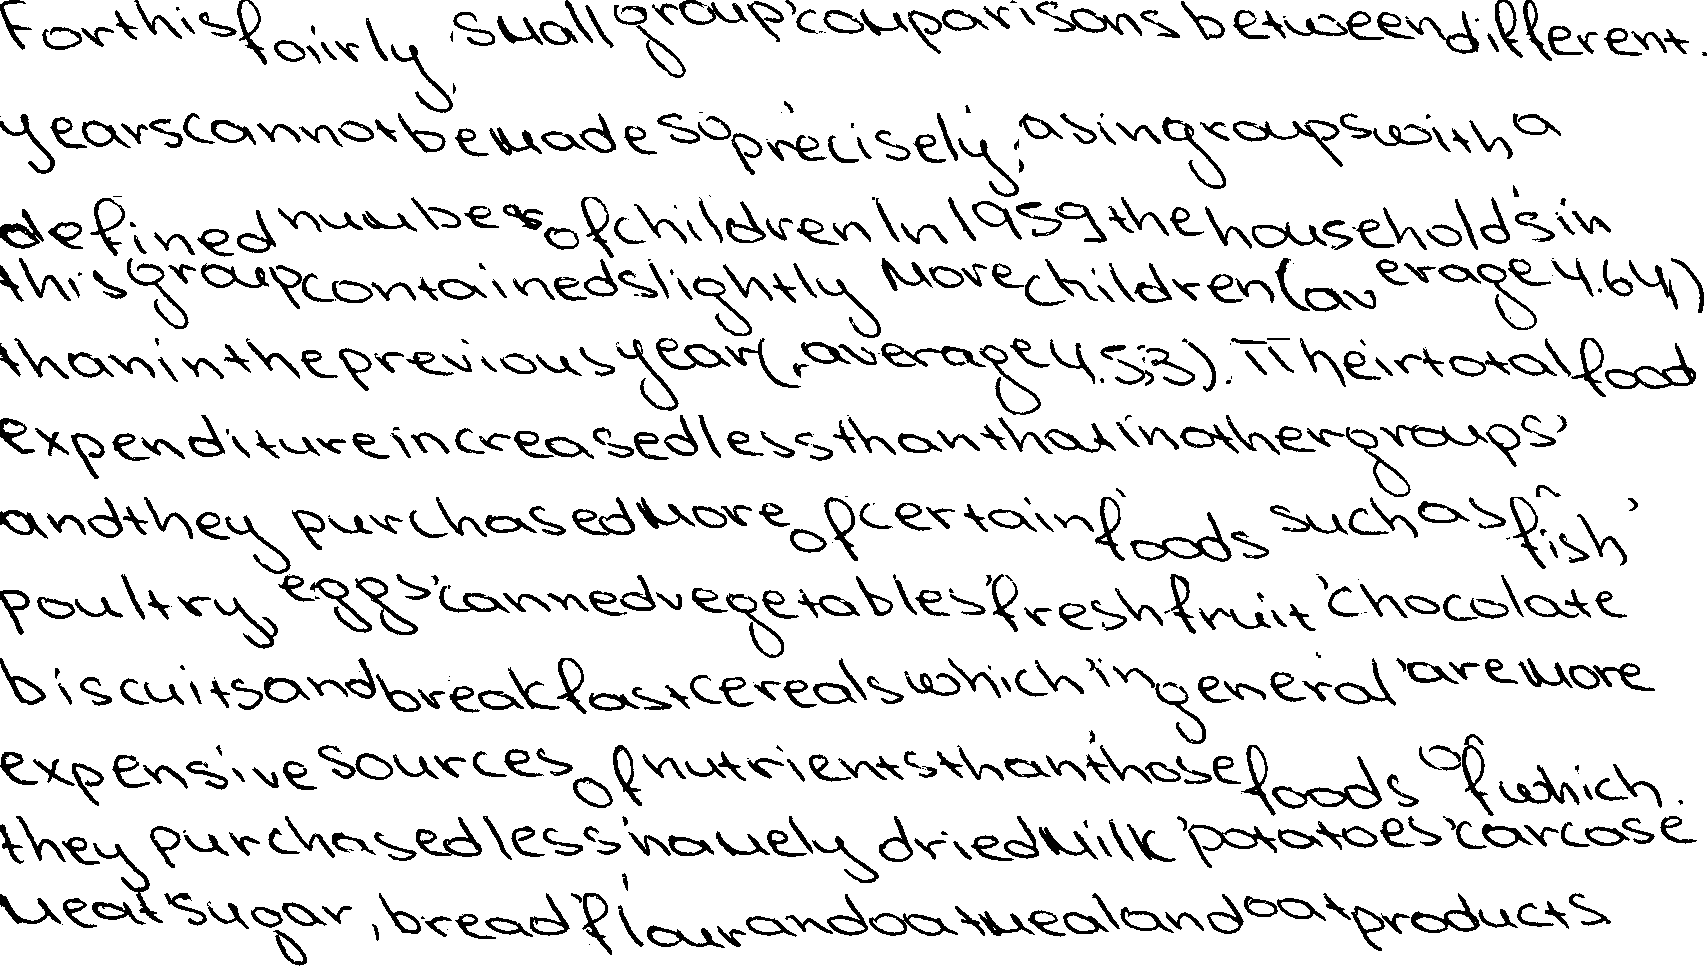 For this fairly small group, comparisons between different
years cannot be made so precisely, as in groups with a
defined number of children In 1959 the households in
this group contained slightly more children (average 4.64)
than in the previous year (average 4.53). Their total food
expenditure increased less than that in other groups,
and they purchased more of certain foods such as fish,
poultry, eggs, canned vegetables, fresh fruit, chocolate
biscuits and breakfast cereals which, in general, are more
expensive sources of nutrients than those foods of which
they purchased less, namely dried milk, potatoes, carcase
meat, sugar, bread, flour and oatmeal and oat products